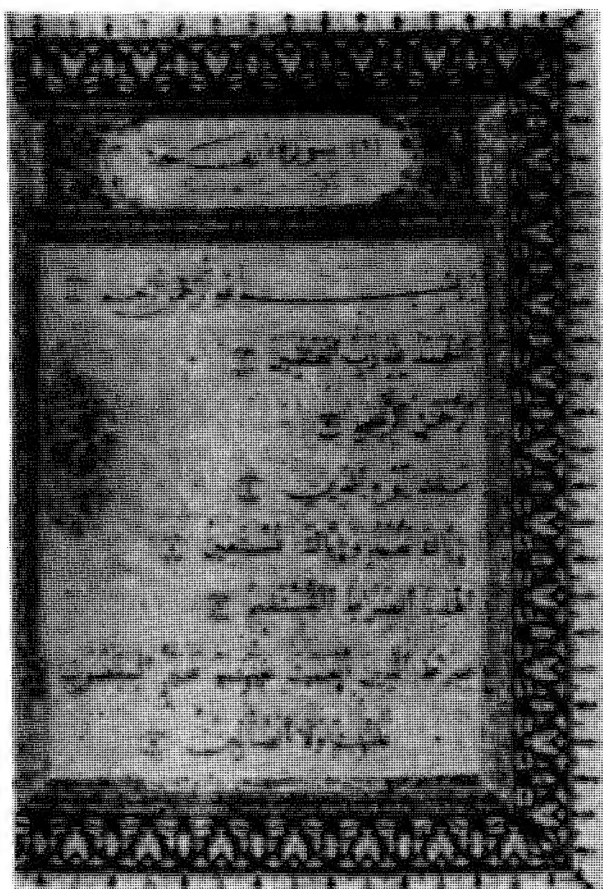 سورة
بسم الله الرحمن الرحيم
الحمد لله رب العلمين
الرحمن الرحيم
ملك يوم الدين
إياك نعبد وإياك نستعين
اهدنا الصراط المستقيم
صراط الذين أنعمت عليهم غير المغضوب
عليهم ولا الضالين